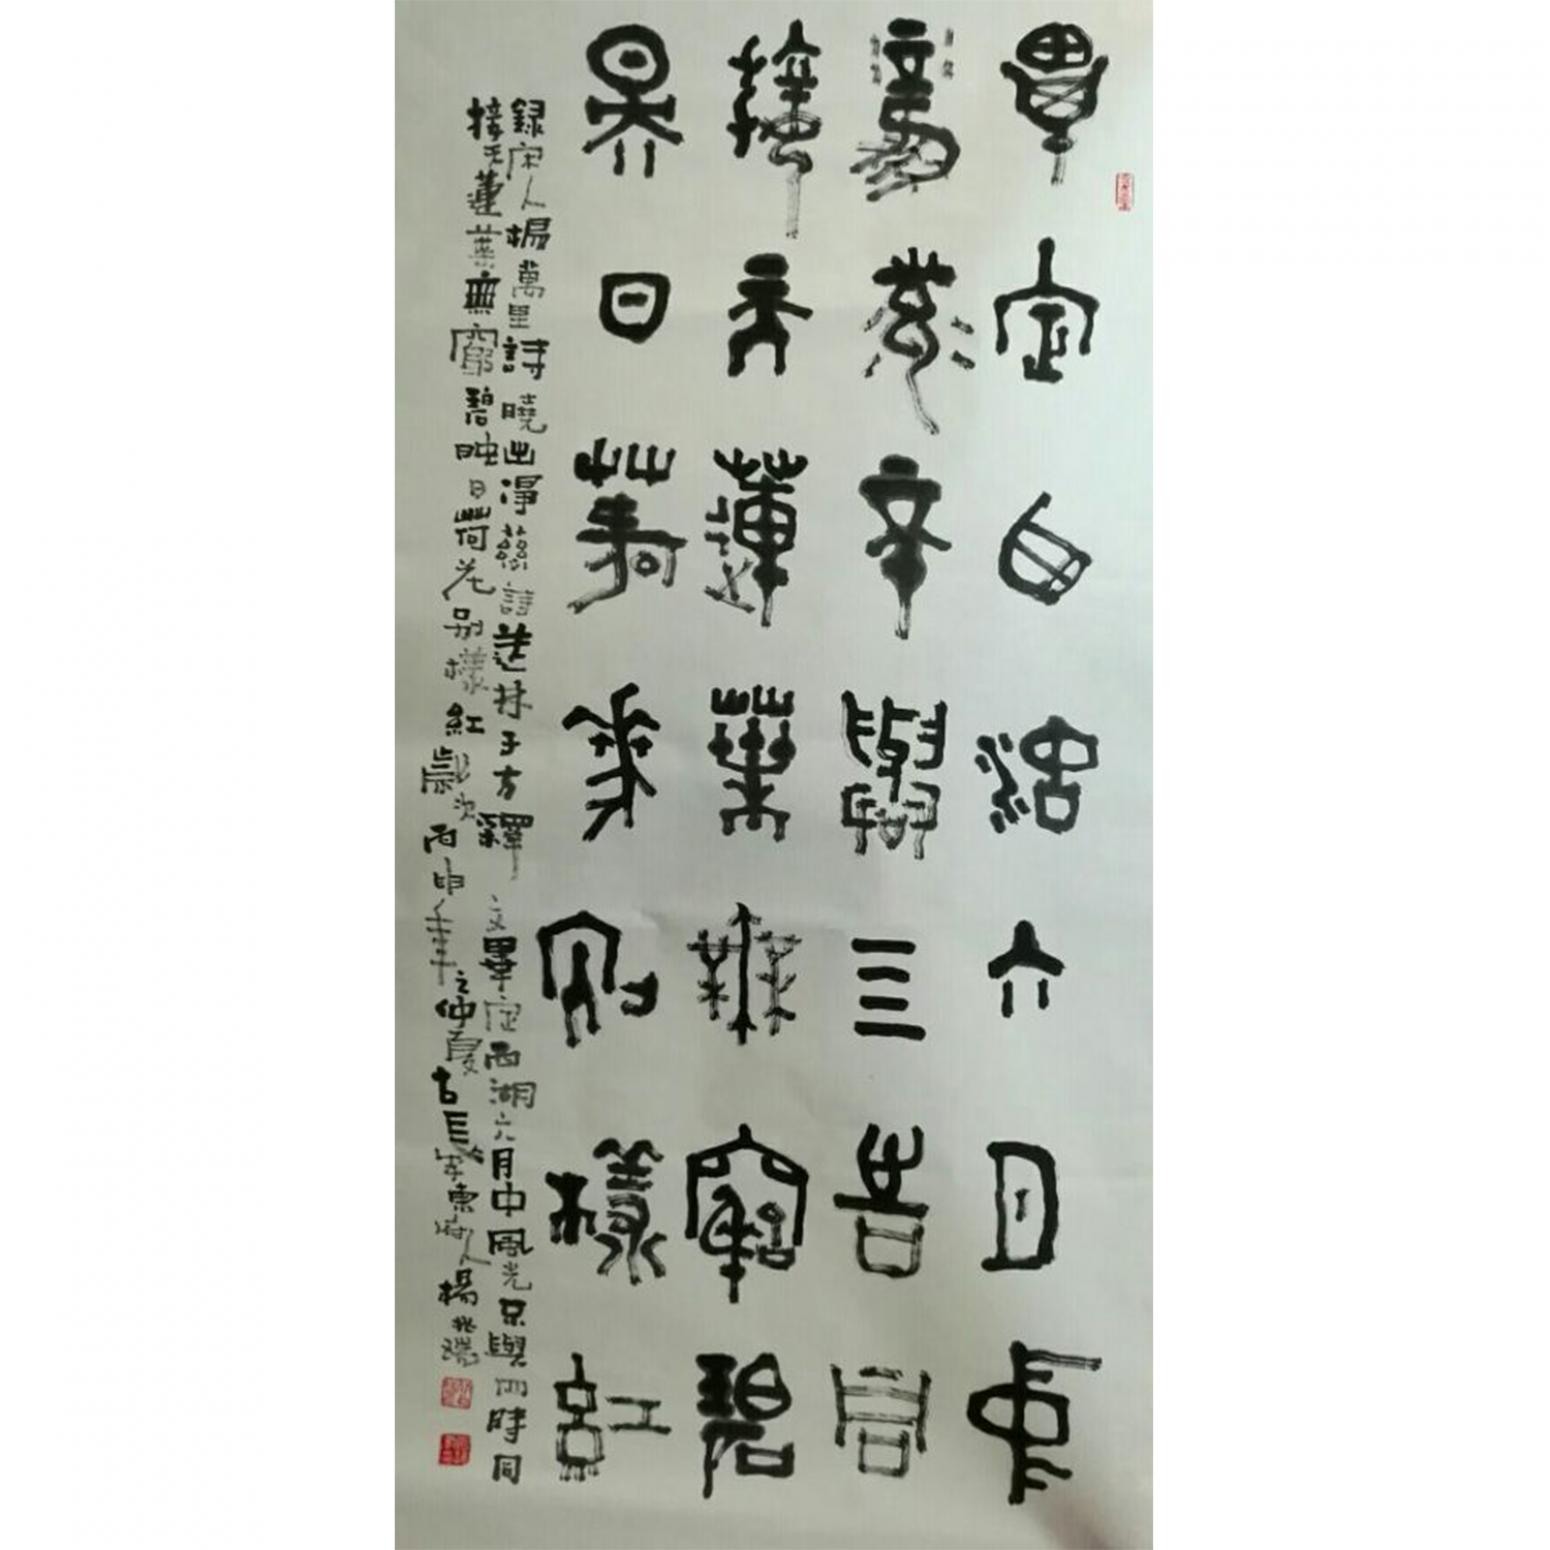 畢竟西湖六月中
風光不與四時同
接天蓮葉無窮碧
映日荷花別樣紅
錄宋人楊萬里詩曉出淨慈詩送林子方釋文畢定西湖六月中風光只與四時同
接天蓮葉無窮碧映日荷花別樣紅歲次丙申年之仲夏古長安東府人楊兆瑞